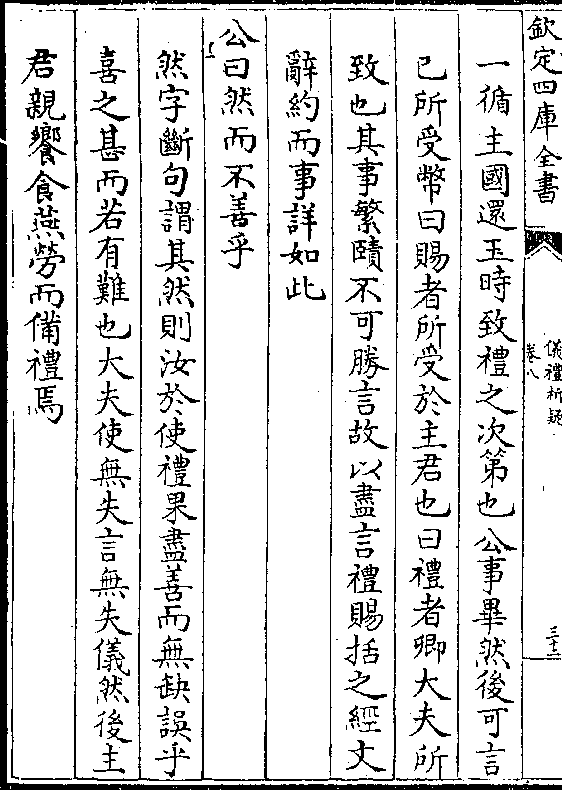 欽定四庫全書
儀禮析疑
卷八
三十二
一循主國還玉時致禮之次第也公事畢然後可言
已所受幣曰賜者所受於主君也曰禮者卿大夫所
致也其事繁賾不可勝言故以盡言禮賜括之經文
辭約而事詳如此
公曰然而不善乎
然字斷句謂其然則汝於使禮果盡善而無缺誤乎
喜之甚而若有難也大夫使無失言無失儀然後主
君親饗食燕勞而備禮焉